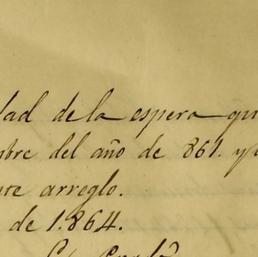 dad de la espera qu
bre del año de 861. y
te arreglo.
de 1.864.